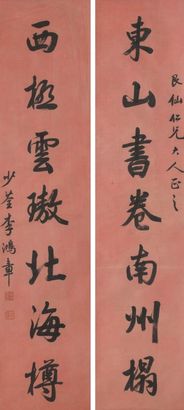 艮仙仁兄大人正之
東山書卷南州榻
西極雲璈北海樽
少荃李鴻章